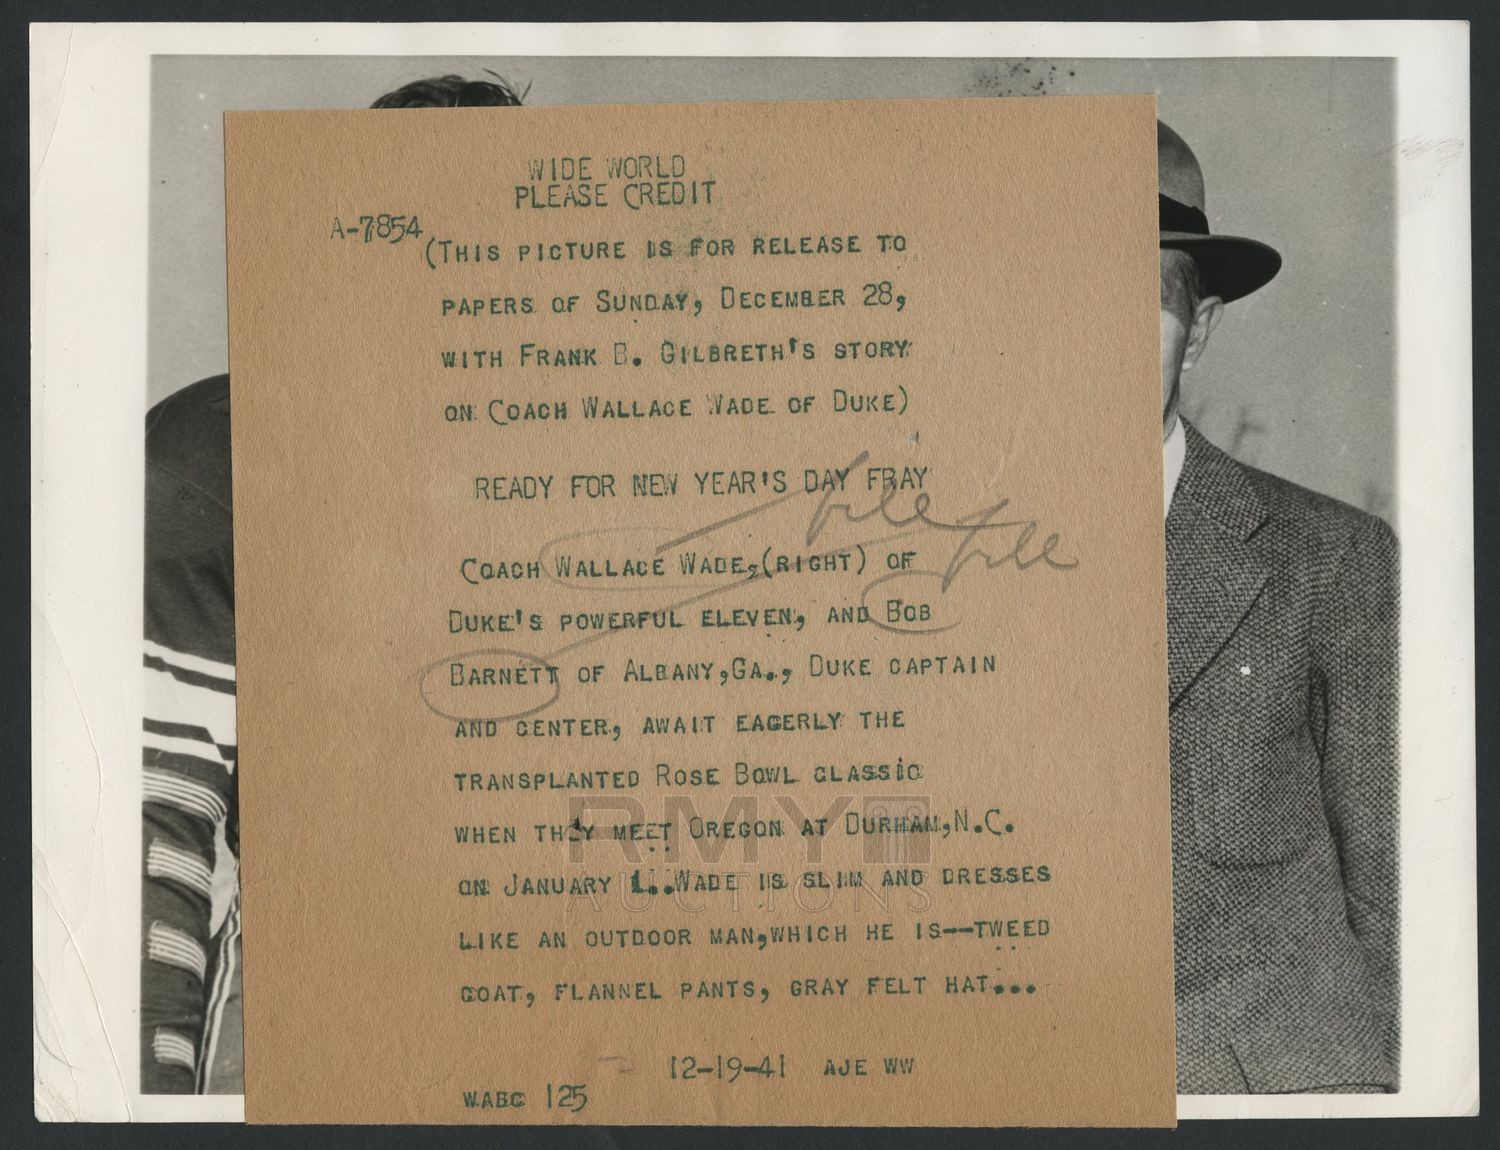 WIDE WORLD
PLEASE CREDIT
A-7854
(THIS PICTURE IS FOR RELEASE TO
PAPERS OF SUNDAY, DECEMBER 28,
WITH FRANK B. GILBRETH'S STORY
ON COACH WALLACE WADE OF DUKE)
READY FOR NEW YEAR'S DAY FRAY
file
file
COACH WALLACE WADE,(RIGHT) OF
DUKE'S POWERFUL ELEVEN, AND BOB
BARNETT OF ALBANY,GA., DUKE CAPTAIN
AND CENTER, AWAIT EAGERLY THE
TRANSPLANTED ROSE BOWL CLASSIC
WHEN THEY MEET OREGON AT DURHAM,N.C.
ON JANUARY 1..WADE IS SLIM AND DRESSES
LIKE AN OUTDOOR MAN,WHICH HE IS--TWEED
COAT, FLANNEL PANTS, GRAY FELT HAT...
12-19-41 AJE WW
WABC 125
RMY
AUCTIONS